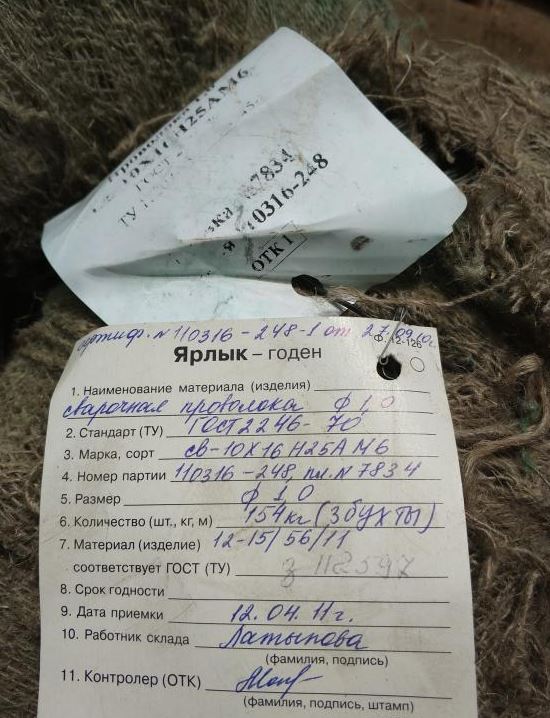 10Х16Н25АМ6
ГОСТ
ТУ
7834
10316-248
ОТК 1
№ 110316-248-1 от 27.09.10г.
Ф. 12-126
Ярлык – годен
1. Наименование материала (изделия)
сварочная проволока ф 1,0
2. Стандарт (ТУ) ГОСТ 2246-70
3. Марка, сорт св-10Х16Н25АМ6
4. Номер партии 110316-248, пл. N 7834
5. Размер ф 1,0
6. Количество (шт., кг, м) 154кг (3 бухты)
7. Материал (изделие) 12-15/56/11
соответствует ГОСТ (ТУ) з 112597
8. Срок годности
9. Дата приемки 12.04.11г.
10. Работник склада Латыпова
(фамилия, подпись)
11. Контролер (ОТК)
(фамилия, подпись, штамп)